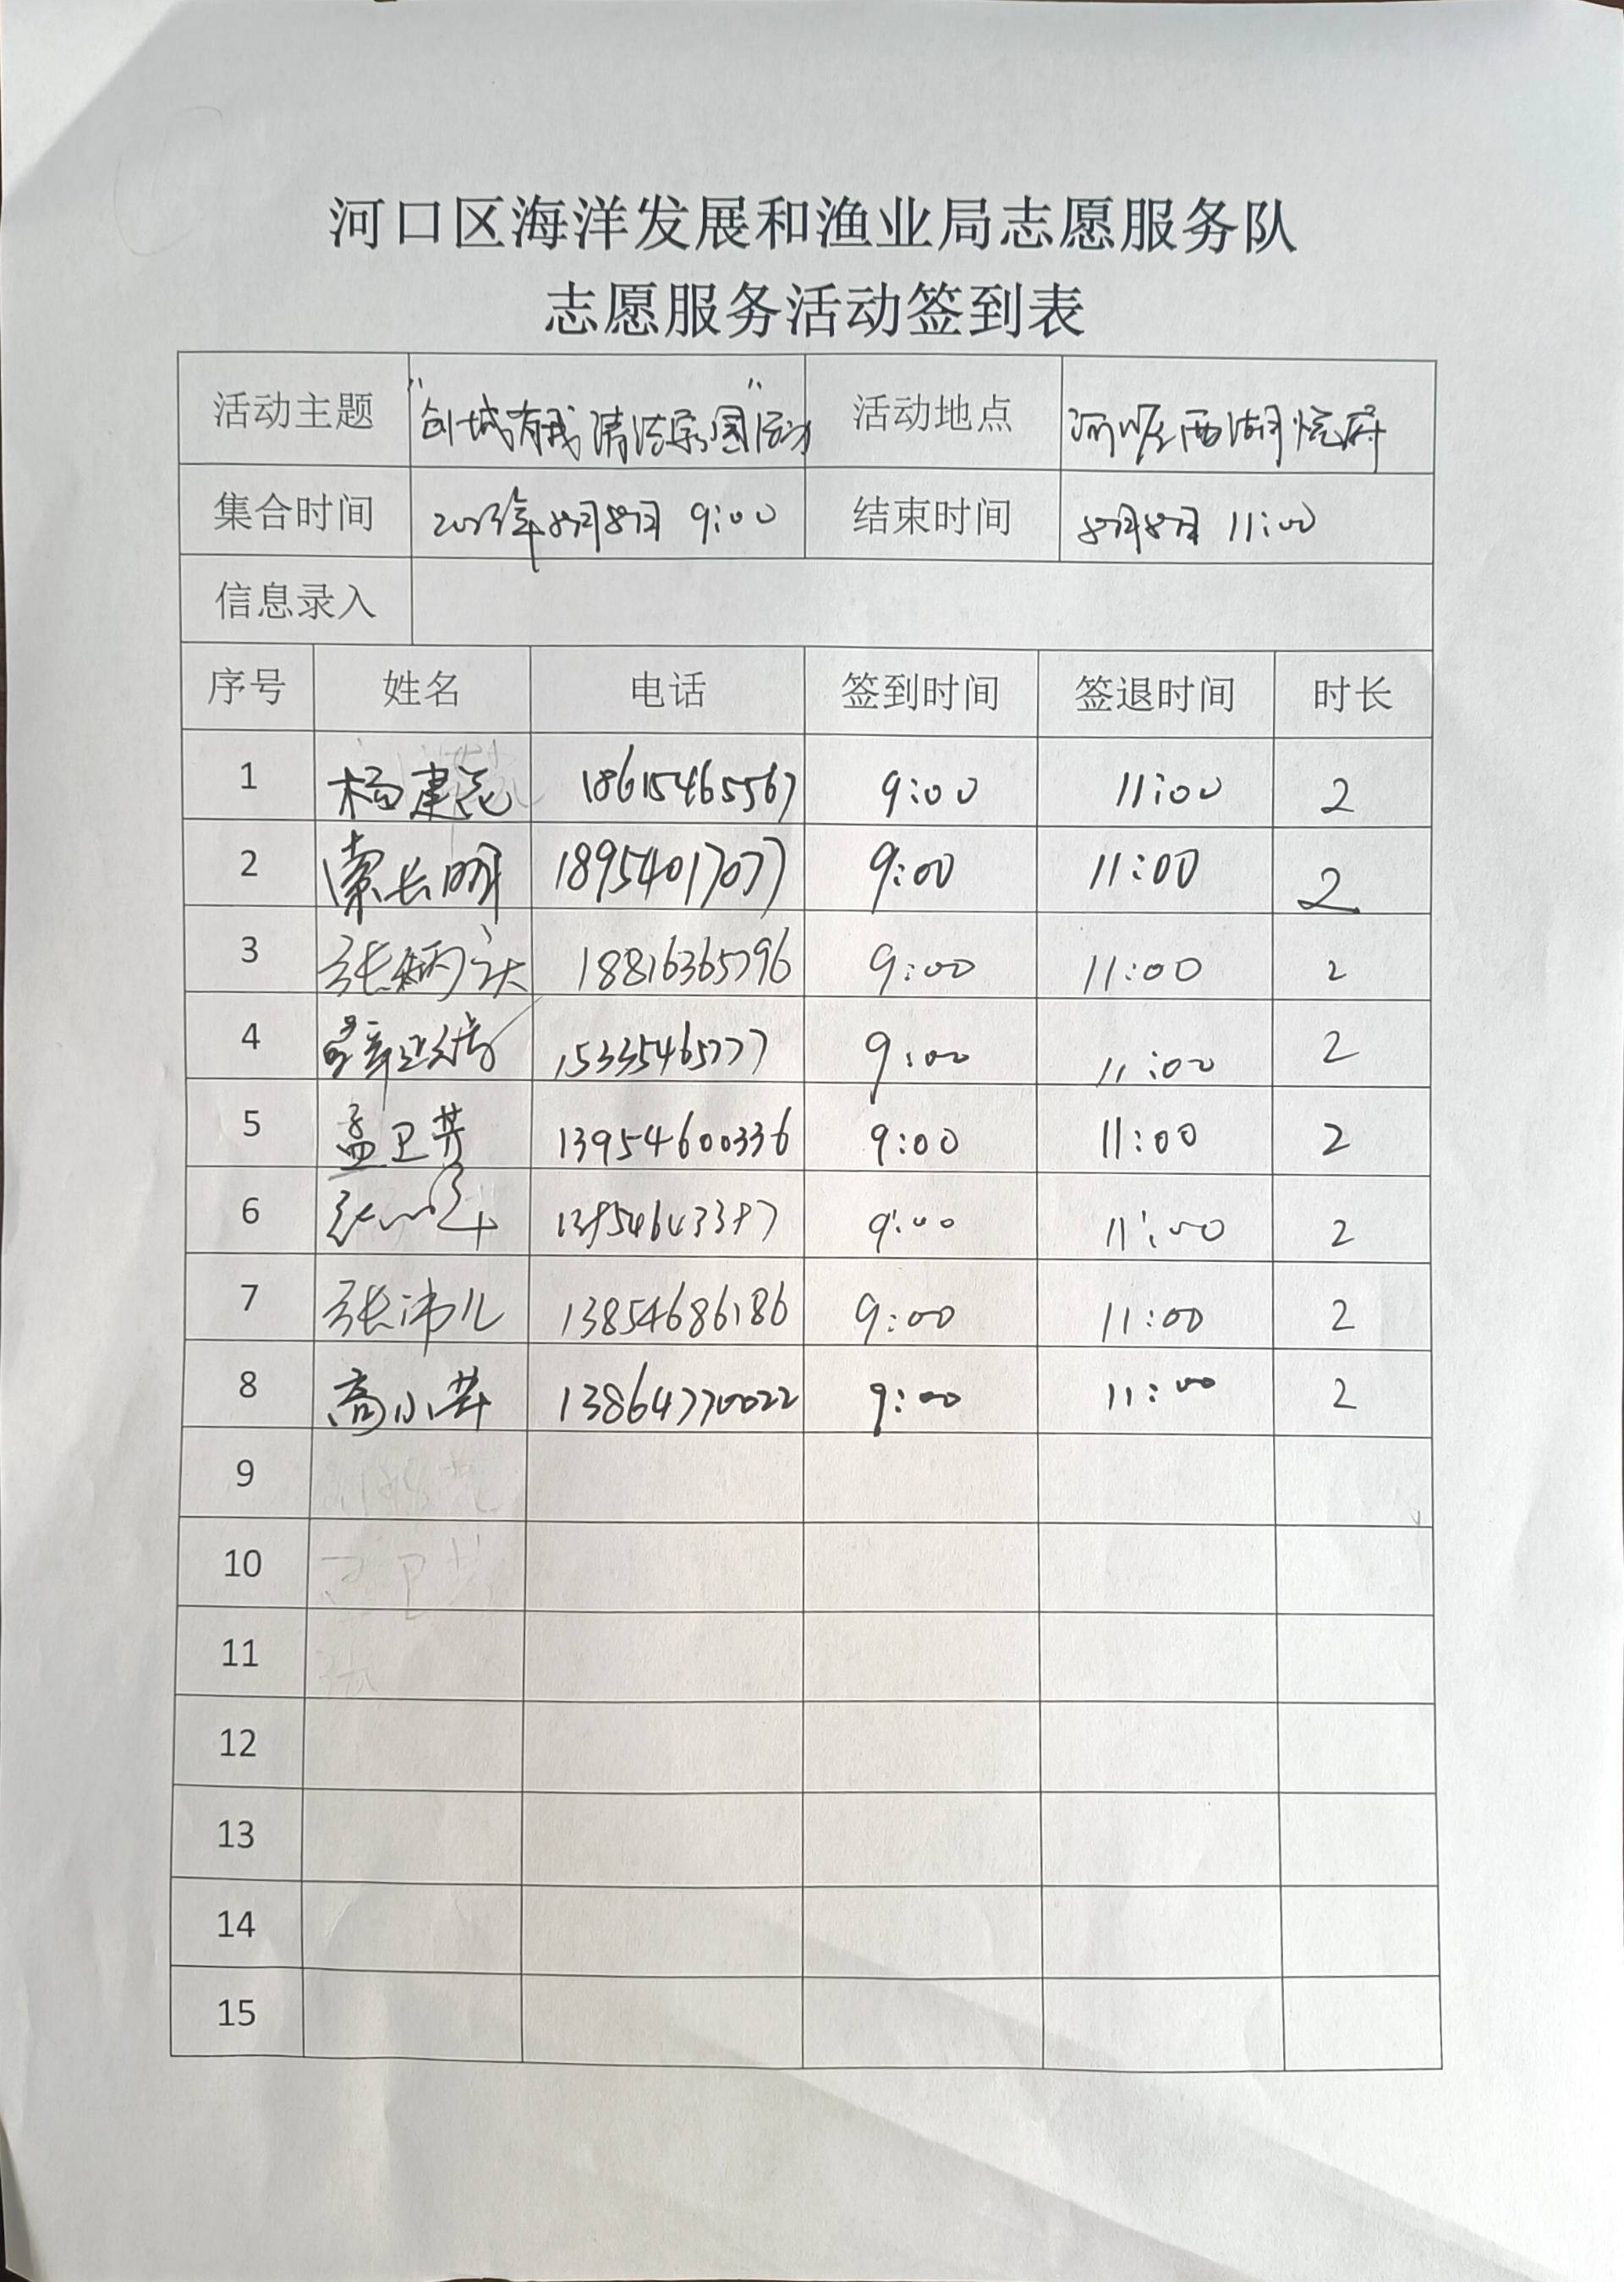 河口区海洋发展和渔业局志愿服务队
志愿服务活动签到表
活动主题 "创城有我 清洁家园"活动 活动地点 河口区西湖悦府
集合时间 2023年8月8日 9:00 结束时间 8月8日 11:00
信息录入
序号 姓名 电话 签到时间 签退时间 时长
1 杨建花 18615465567 9:00 11:00 2
2 索长明 18954017077 9:00 11:00 2
3 张炳 18816365796 9:00 11:00 2
4 15335465777 9:00 11:00 2
5 孟卫芳 13954600336 9:00 11:00 2
6 张 9:00 11:00 2
7 张沛儿 13854686186 9:00 11:00 2
8 高小苹 13864770022 9:00 11:00 2
9
10
11
12
13
14
15